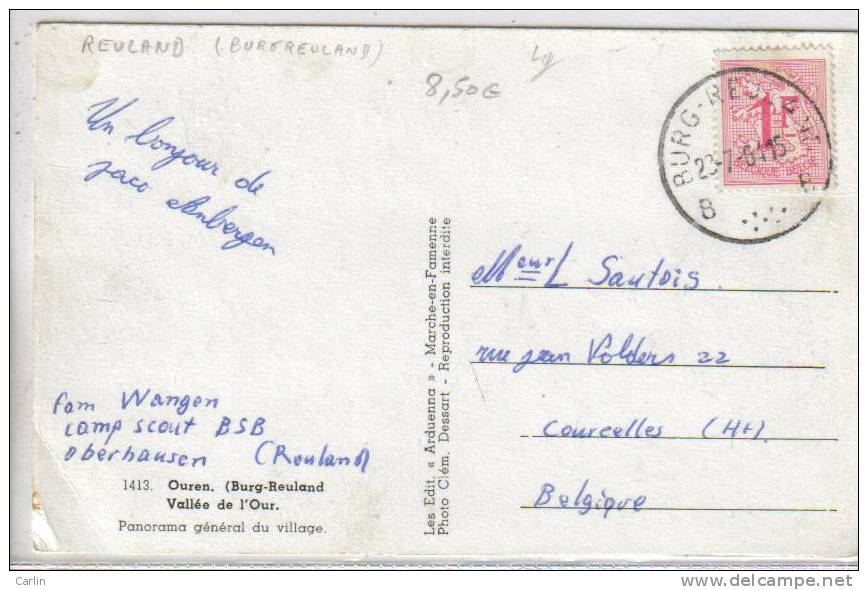 REULAND (BURGREULAND)
8,50€
Lg
BURG-REULAND
23-7-64 15
B B
1F
BELGIQUE-BELGIË
Un bonjour de
Jaco
Meur L Sautois
rue Jean Volders 22
Courcelles (Ht)
Belgique
fam Wangen
camp scout BSB
Oberhausen (Reuland)
1413. Ouren. (Burg-Reuland
Vallée de l'Our.
Panorama général du village.
Les Edit. « Arduenna » - Marche-en-Famenne
Photo Clém. Dessart - Reproduction interdite
Carlin
www.delcampe.net